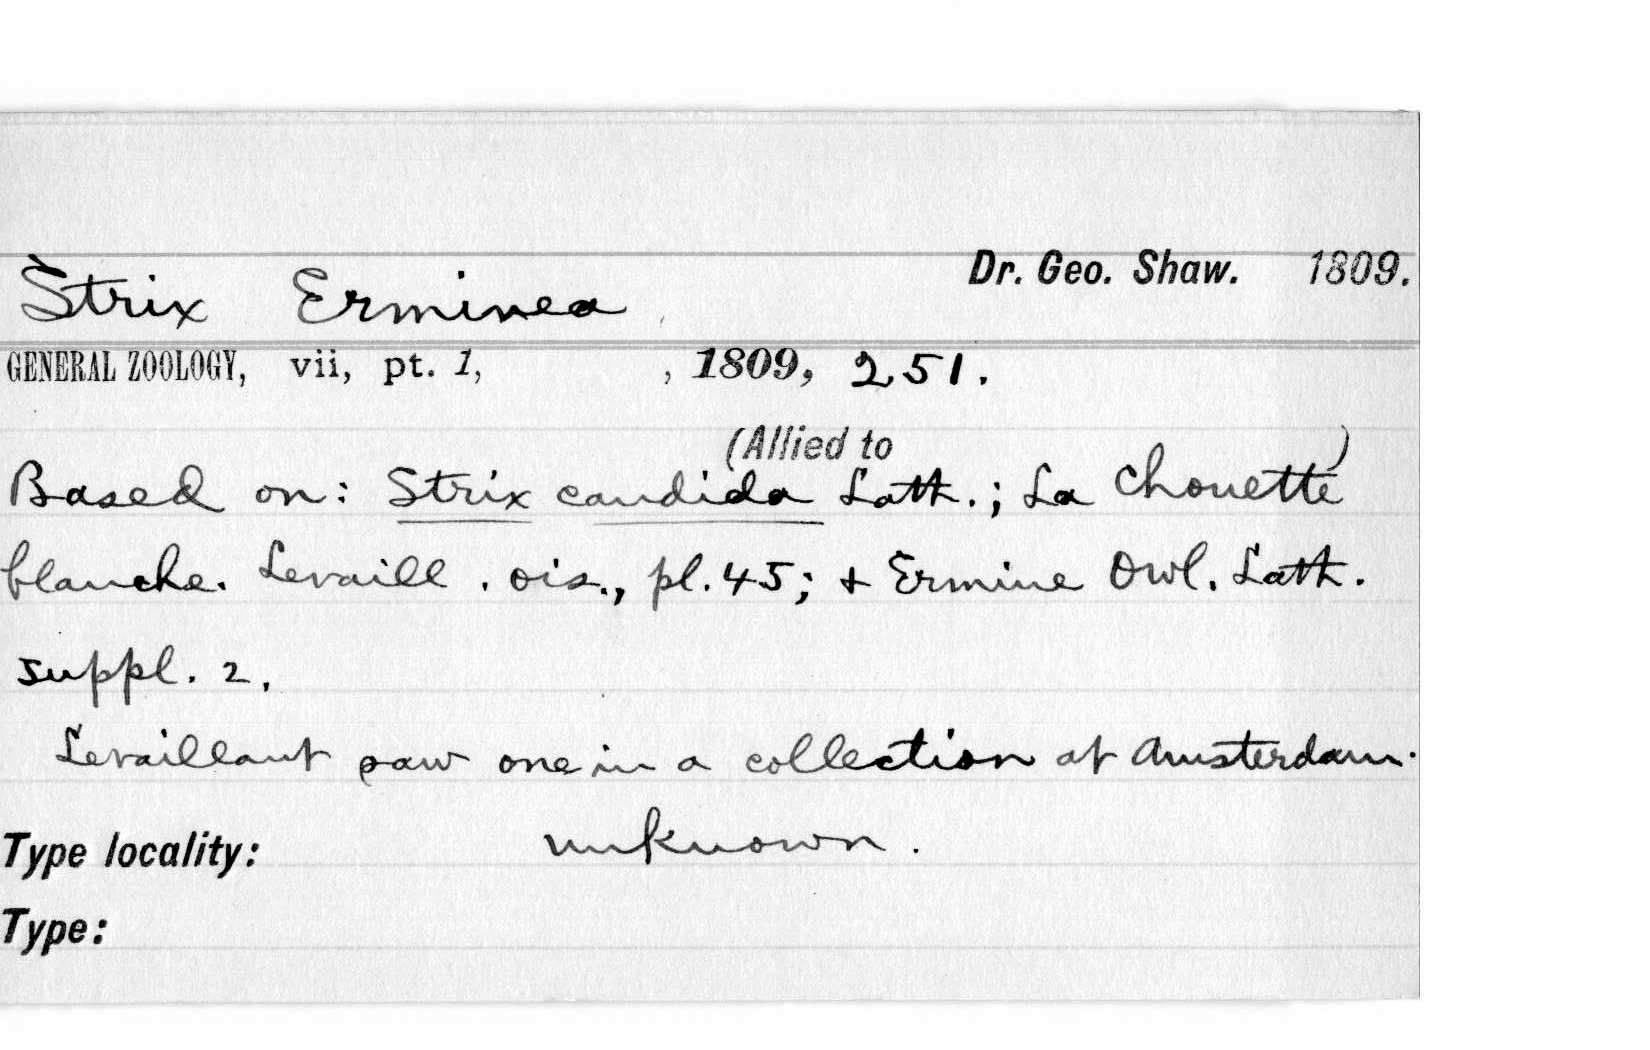 Dr. Geo. Shaw. 1809.
Strix Erminea
GENERAL ZOOLOGY, vii, pt. 1, , 1809, 251.
(Allied to )
Based on: Strix candida Lath.; La Chouette
blanche. Levaill. ois., pl. 45; + Ermine Owl. Lath.
suppl. 2.
Levaillant saw one in a collection at Amsterdam.
Type locality: unknown.
Type: